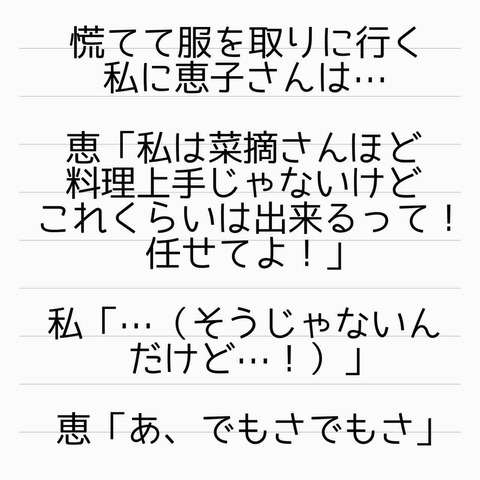 慌てて服を取りに行く
私に恵子さんは…
恵「私は菜摘さんほど
料理上手じゃないけど
これくらいは出来るって！
任せてよ！」
私「…（そうじゃないん
だけど…！）」
恵「あ、でもさでもさ」